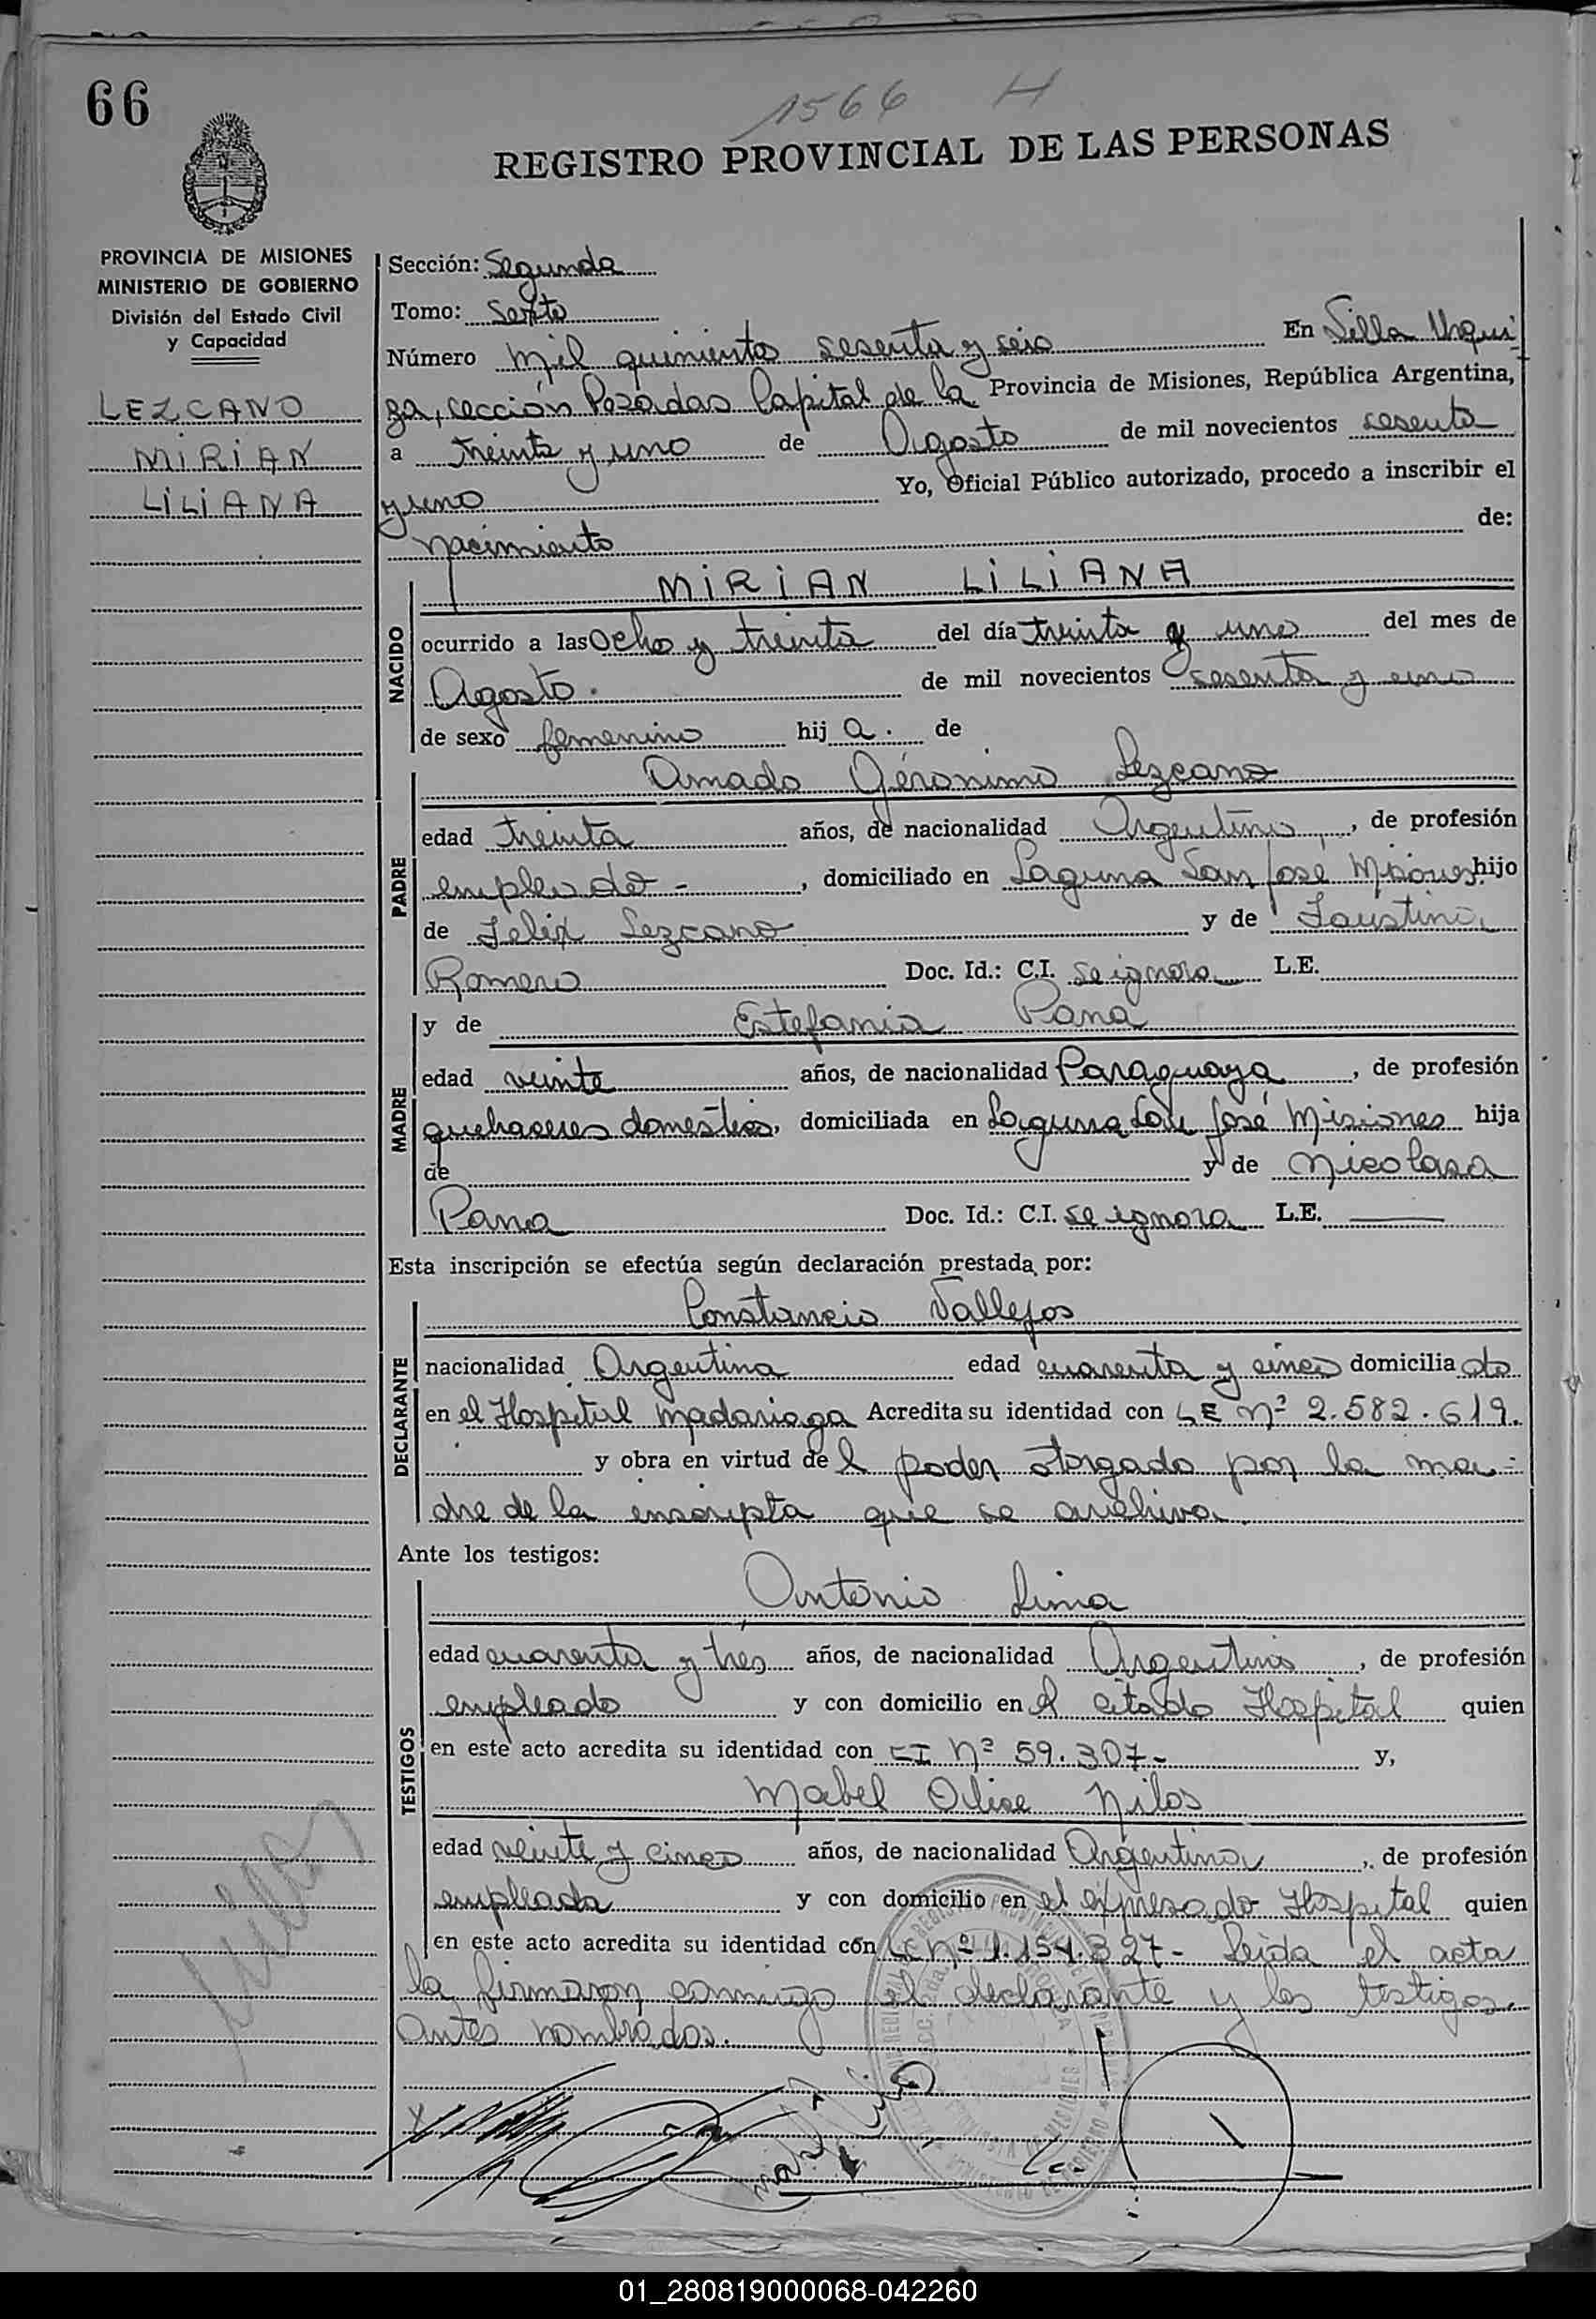 66
1566 H
REGISTRO PROVINCIAL DE LAS PERSONAS
PROVINCIA DE MISIONES
MINISTERIO DE GOBIERNO
División del Estado Civil
y Capacidad
LEZCANO
MIRIAN
LILIANA
Sección: Segunda
Tomo: Sexto
Número mil quinientos sesenta y seis En Villa Urqui
za, sección Posadas Capital de la Provincia de Misiones, República Argentina,
a treinta y uno de Agosto de mil novecientos sesenta
y uno Yo, Oficial Público autorizado, procedo a inscribir el
nacimiento de:
NACIDO
MIRIAN LILIANA
ocurrido a las Ocho y treinta del día treinta y uno del mes de
Agosto. de mil novecientos sesenta y uno
de sexo femenino hij a. de
PADRE
Amado Gerónimo Lezcano
edad treinta años, de nacionalidad Argentino, de profesión
empleado - , domiciliado en Laguna San José Misiones hijo
de Felix Lezcano y de Faustina
Romero Doc. Id.: C.I. se ignora L.E.
MADRE
y de Estefania Pana
edad veinte años, de nacionalidad Paraguaya, de profesión
quehaceres domesticos, domiciliada en Laguna San José Misiones hija
de y de Nicolasa
Pana Doc. Id.: C.I. se ignora L.E.
Esta inscripción se efectúa según declaración prestada por:
DECLARANTE
Constancio Vallejos
nacionalidad Argentina edad cuarenta y cinco domicilia do
en el Hospital Madariaga Acredita su identidad con LE Nº 2.582.619.
y obra en virtud de l poder otorgado por la ma-
dre de la inscripta que se archiva.
Ante los testigos:
TESTIGOS
Antonio Lima
edad cuarenta y tres años, de nacionalidad Argentino, de profesión
empleado y con domicilio en el citado Hospital quien
en este acto acredita su identidad con CI Nº 59.307- y,
Mabel Nilos
edad veinte y cinco años, de nacionalidad Argentina, de profesión
empleada y con domicilio en el expresado Hospital quien
en este acto acredita su identidad con LC Nº 1.154.327- Leida el acta
la firmaron conmigo el declarante y los testigos
antes nombrados.
01_280819000068-042260